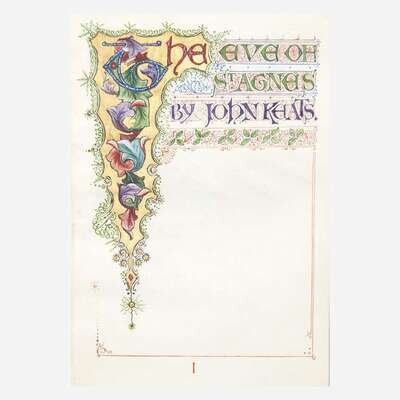 The EVE OF
ST AGNES
BY JOHN KEATS.
I